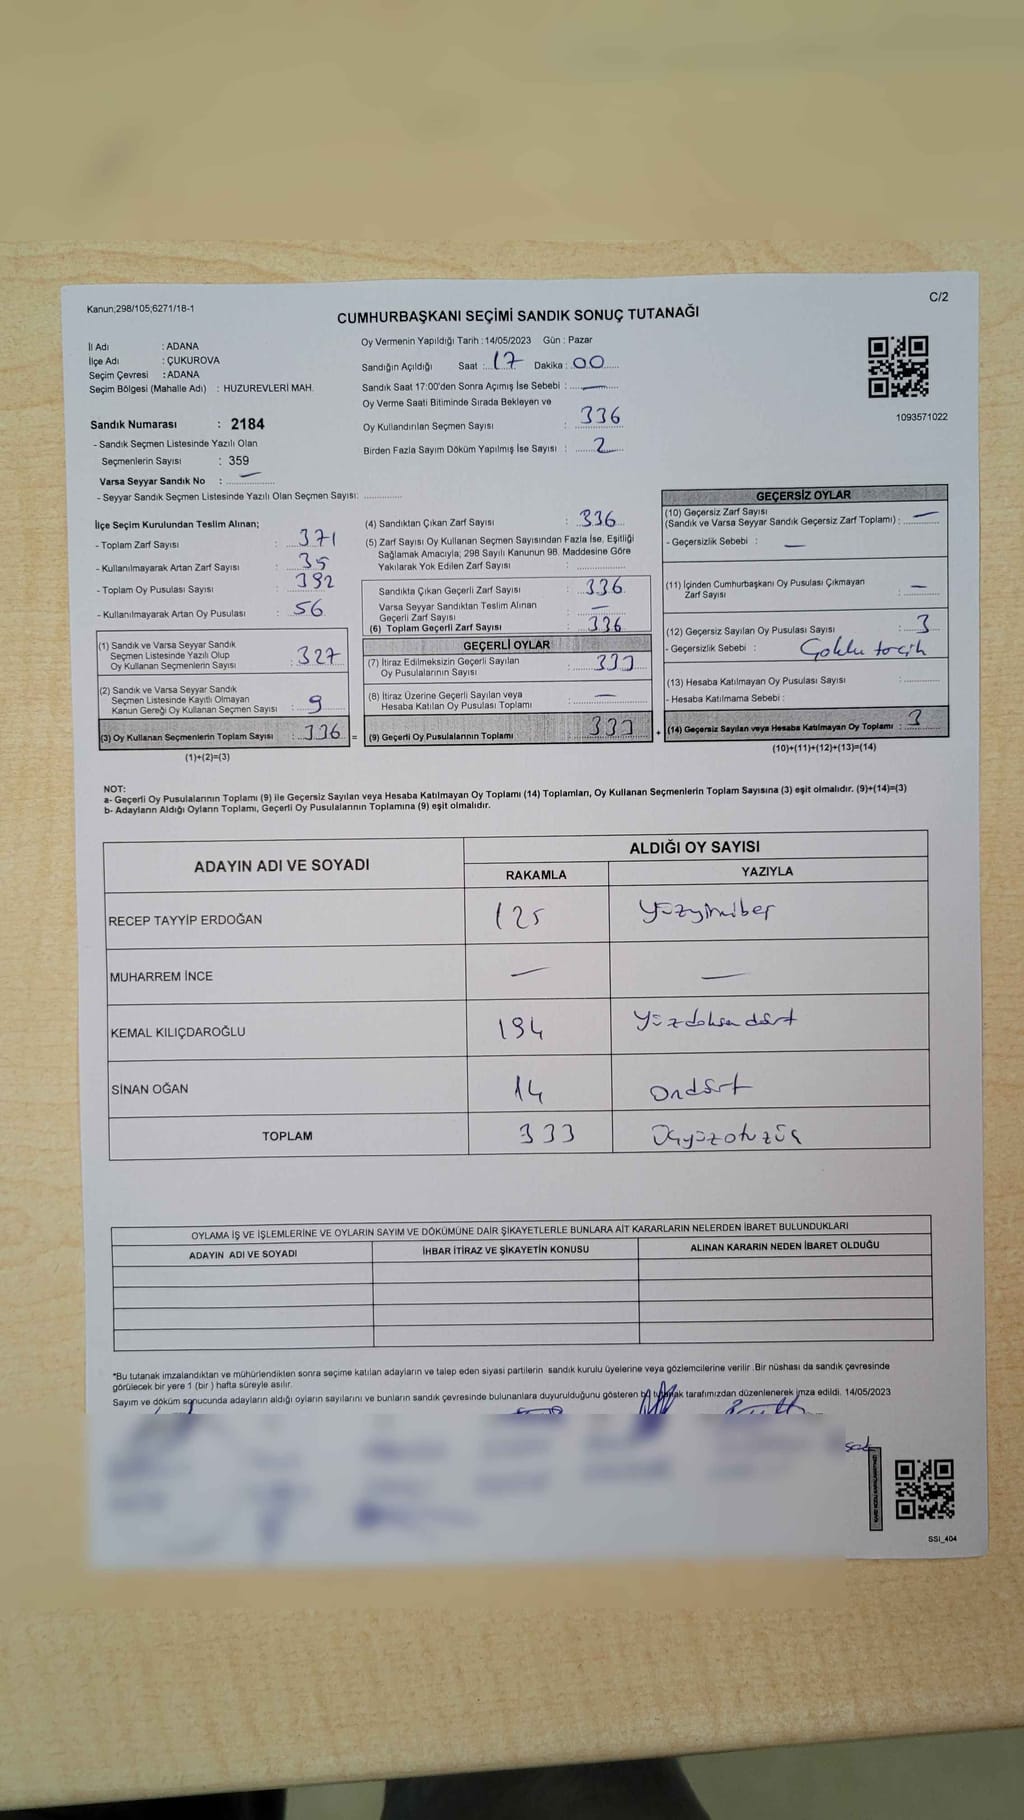 Kanun;298/105;6271/18-1
C/2
CUMHURBAŞKANI SEÇİMİ SANDIK SONUÇ TUTANAĞI
İl Adı : ADANA
İlçe Adı : ÇUKUROVA
Seçim Çevresi : ADANA
Seçim Bölgesi (Mahalle Adı) : HUZUREVLERİ MAH.
Sandık Numarası : 2184
- Sandık Seçmen Listesinde Yazılı Olan
Seçmenlerin Sayısı : 359
Varsa Seyyar Sandık No : —
- Seyyar Sandık Seçmen Listesinde Yazılı Olan Seçmen Sayısı:
Oy Vermenin Yapıldığı Tarih : 14/05/2023 Gün : Pazar
Sandığın Açıldığı Saat : 17 Dakika : 00
Sandık Saat 17:00'den Sonra Açımış İse Sebebi : —
Oy Verme Saati Bitiminde Sırada Bekleyen ve
Oy Kullandırılan Seçmen Sayısı : 336
Birden Fazla Sayım Döküm Yapılmış İse Sayısı : 2
1093571022
İlçe Seçim Kurulundan Teslim Alınan;
- Toplam Zarf Sayısı : 371
- Kullanılmayarak Artan Zarf Sayısı : 35
- Toplam Oy Pusulası Sayısı : 392
- Kullanılmayarak Artan Oy Pusulası : 56
(1) Sandık ve Varsa Seyyar Sandık
Seçmen Listesinde Yazılı Olup
Oy Kullanan Seçmenlerin Sayısı : 327
(2) Sandık ve Varsa Seyyar Sandık
Seçmen Listesinde Kayıtlı Olmayan
Kanun Gereği Oy Kullanan Seçmen Sayısı : 9
(3) Oy Kullanan Seçmenlerin Toplam Sayısı : 336 =
(1)+(2)=(3)
(4) Sandıktan Çıkan Zarf Sayısı : 336
(5) Zarf Sayısı Oy Kullanan Seçmen Sayısından Fazla İse, Eşitliği
Sağlamak Amacıyla; 298 Sayılı Kanunun 98. Maddesine Göre
Yakılarak Yok Edilen Zarf Sayısı :
Sandıkta Çıkan Geçerli Zarf Sayısı : 336
Varsa Seyyar Sandıktan Teslim Alınan
Geçerli Zarf Sayısı : —
(6) Toplam Geçerli Zarf Sayısı : 336
GEÇERLİ OYLAR
(7) İtiraz Edilmeksizin Geçerli Sayılan
Oy Pusulalarının Sayısı : 333
(8) İtiraz Üzerine Geçerli Sayılan veya
Hesaba Katılan Oy Pusulası Toplamı : —
(9) Geçerli Oy Pusulalarının Toplamı : 333 +
GEÇERSİZ OYLAR
(10) Geçersiz Zarf Sayısı
(Sandık ve Varsa Seyyar Sandık Geçersiz Zarf Toplamı) : —
- Geçersizlik Sebebi : —
(11) İçinden Cumhurbaşkanı Oy Pusulası Çıkmayan
Zarf Sayısı : —
(12) Geçersiz Sayılan Oy Pusulası Sayısı : 3
- Geçersizlik Sebebi : Çoklu tercih
(13) Hesaba Katılmayan Oy Pusulası Sayısı :
- Hesaba Katılmama Sebebi :
(14) Geçersiz Sayılan veya Hesaba Katılmayan Oy Toplamı : 3
(10)+(11)+(12)+(13)=(14)
NOT:
a- Geçerli Oy Pusulalarının Toplamı (9) ile Geçersiz Sayılan veya Hesaba Katılmayan Oy Toplamı (14) Toplamları, Oy Kullanan Seçmenlerin Toplam Sayısına (3) eşit olmalıdır. (9)+(14)=(3)
b- Adayların Aldığı Oyların Toplamı, Geçerli Oy Pusulalarının Toplamına (9) eşit olmalıdır.
ADAYIN ADI VE SOYADI
ALDIĞI OY SAYISI
RAKAMLA YAZIYLA
RECEP TAYYİP ERDOĞAN 125 Yüzyirmibeş
MUHARREM İNCE — —
KEMAL KILIÇDAROĞLU 194 Yüzdoksandört
SİNAN OĞAN 14 Ondört
TOPLAM 333 Üçyüzotuzüç
OYLAMA İŞ VE İŞLEMLERİNE VE OYLARIN SAYIM VE DÖKÜMÜNE DAİR ŞİKAYETLERLE BUNLARA AİT KARARLARIN NELERDEN İBARET BULUNDUKLARI
ADAYIN ADI VE SOYADI İHBAR İTİRAZ VE ŞİKAYETİN KONUSU ALINAN KARARIN NEDEN İBARET OLDUĞU
*Bu tutanak imzalandıktan ve mühürlendikten sonra seçime katılan adayların ve talep eden siyasi partilerin sandık kurulu üyelerine veya gözlemcilerine verilir .Bir nüshası da sandık çevresinde
görülecek bir yere 1 (bir ) hafta süreyle asılır.
Sayım ve döküm sonucunda adayların aldığı oyların sayılarını ve bunların sandık çevresinde bulunanlara duyurulduğunu gösteren bu tutanak tarafımızdan düzenlenerek imza edildi. 14/05/2023
SSI_404